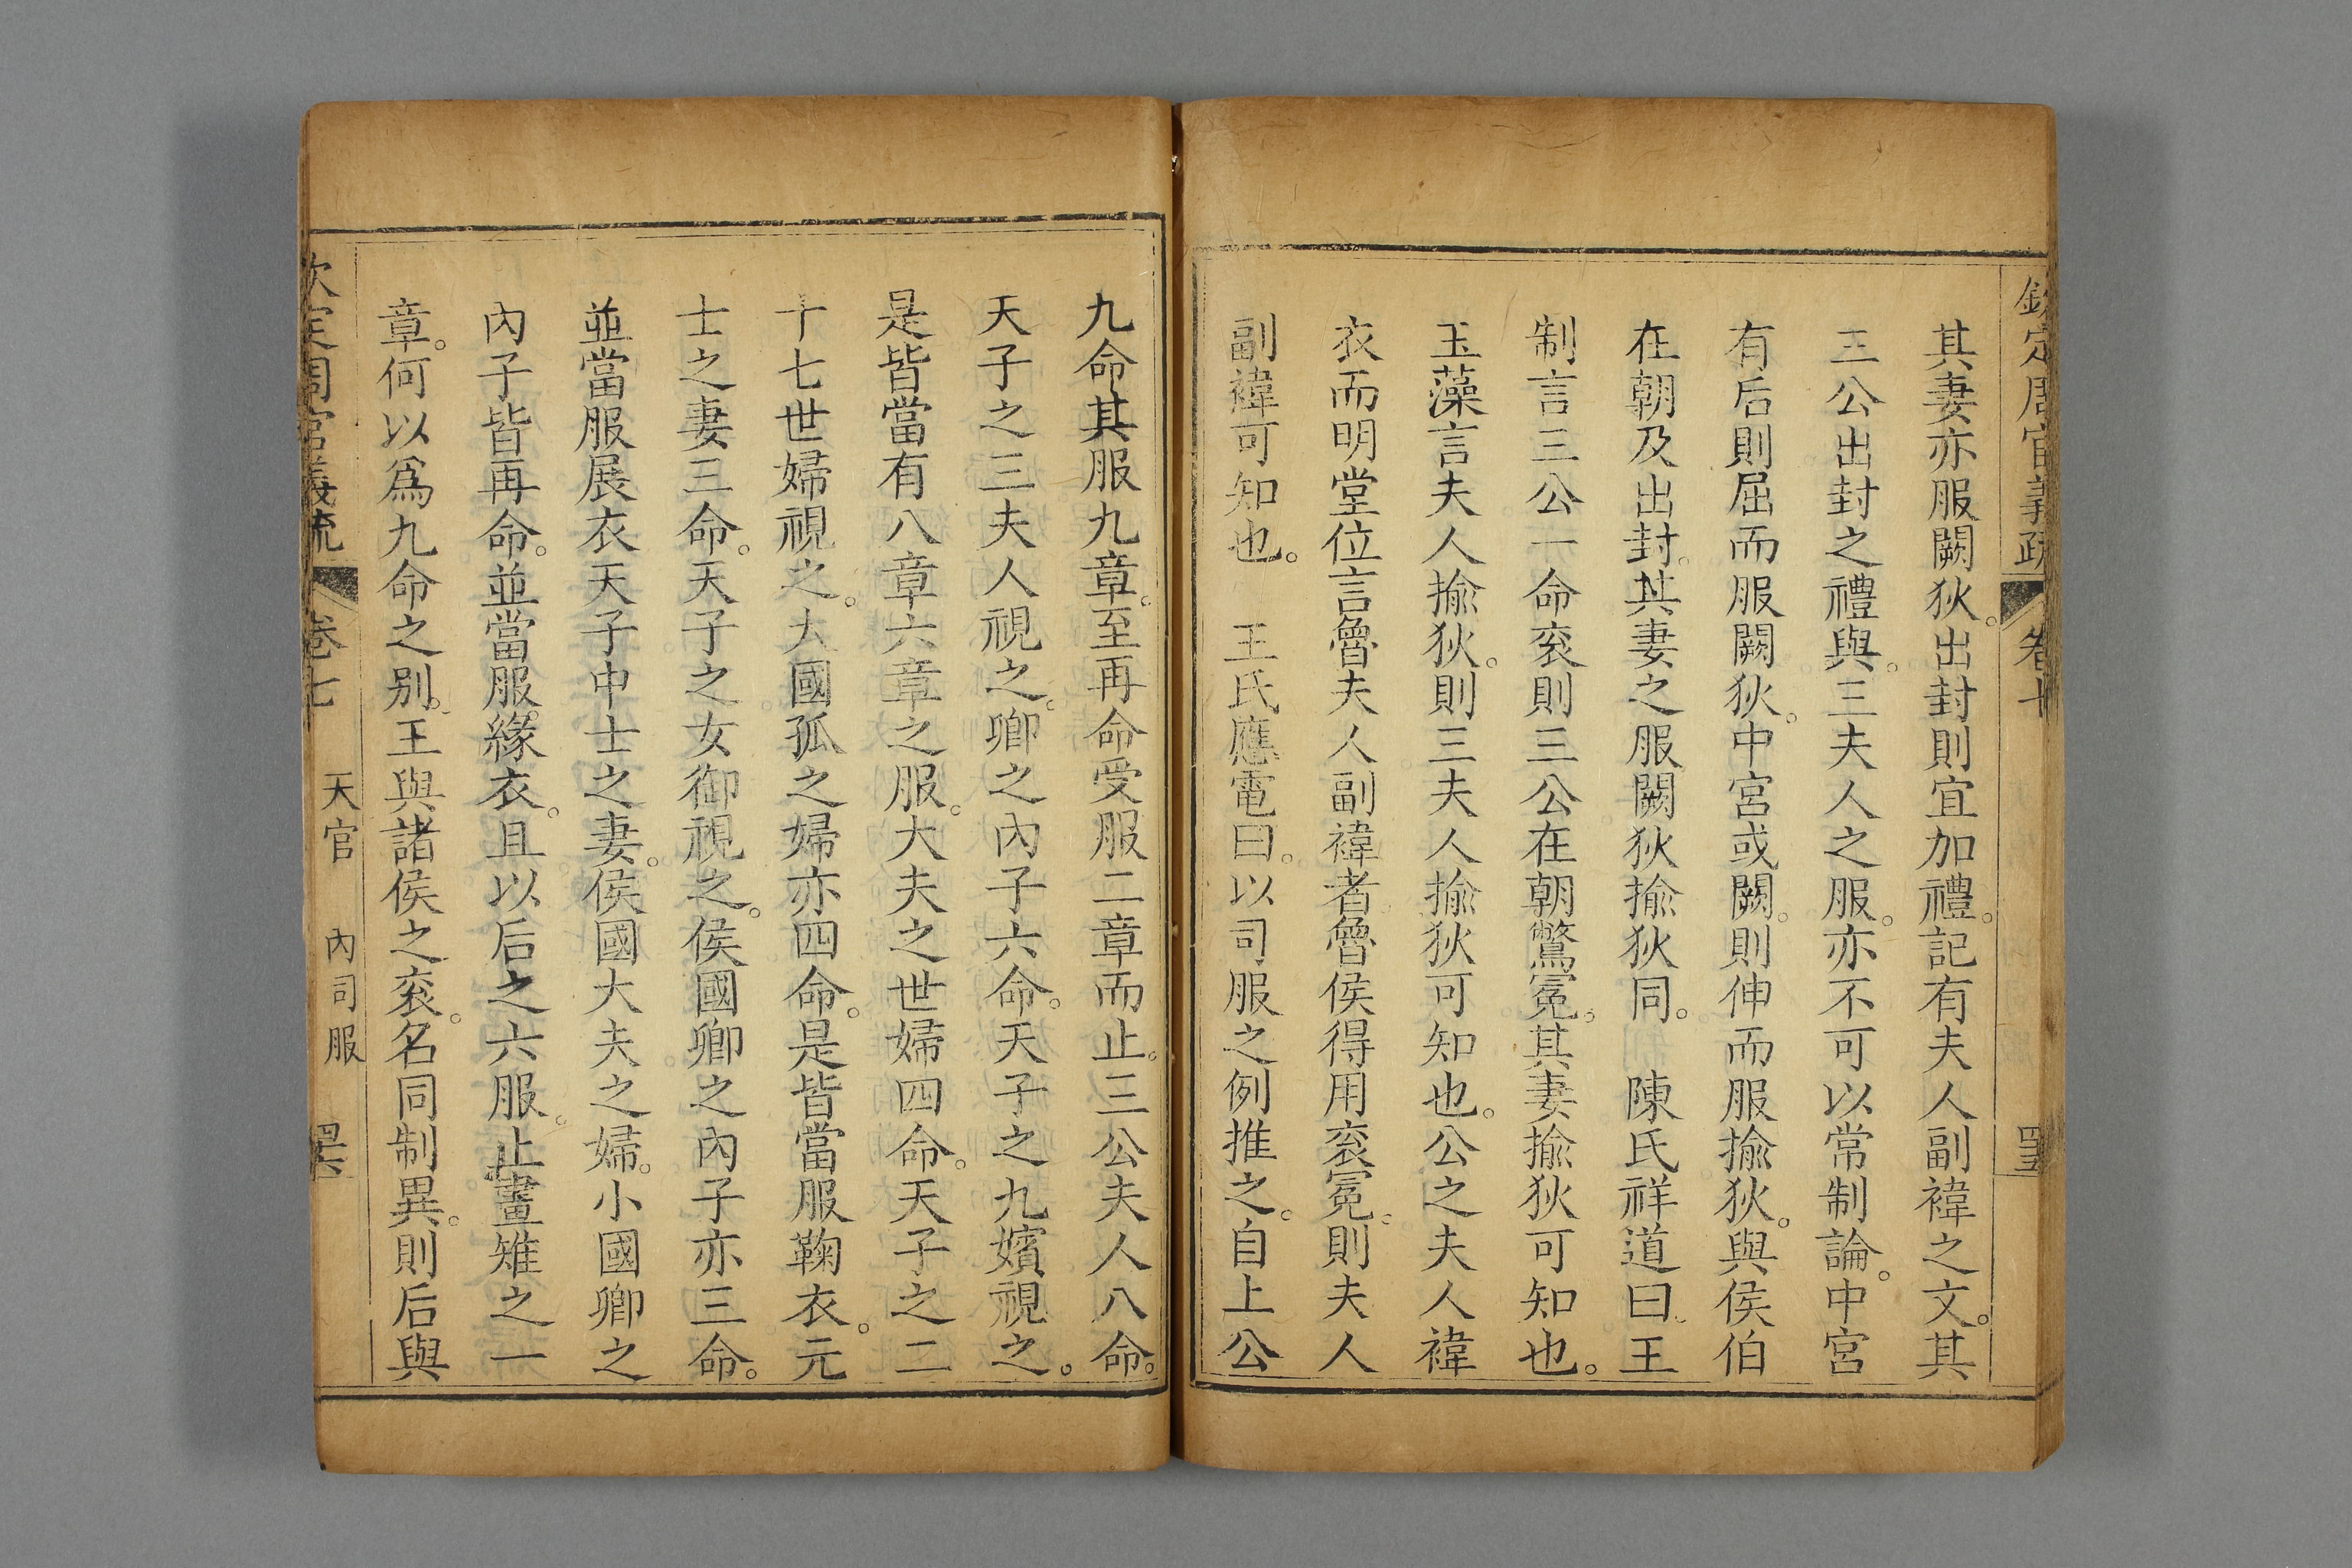 欽定周官義疏 卷七 罡
其妻亦服闕狄。出封則宜加禮。記有夫人副褘之文。其
三公出封之禮與。三夫人之服。亦不可以常制論。中宮
有后則屈而服闕狄。中宮或闕。則伸而服揄狄。與侯伯
在朝及出封。其妻之服闕狄揄狄同。 陳氏祥道曰。王
制言三公一命衮則三公在朝鷩冕。其妻揄狄可知也。
玉藻言夫人揄狄。則三夫人揄狄可知也。公之夫人褘
衣而明堂位言魯夫人副褘者魯侯得用衮冕。則夫人
副褘可知也。 王氏應電曰。以司服之例推之。自上公
九命其服九章。至再命受服二章而止。三公夫人八命。
天子之三夫人視之。卿之內子六命。天子之九嬪視之。
是皆當有八章六章之服。大夫之世婦四命。天子之二
十七世婦視之。大國孤之婦亦四命。是皆當服鞠衣。元
士之妻三命。天子之女御視之。侯國卿之內子亦三命。
並當服展衣天子中士之妻。侯國大夫之婦。小國卿之
內子皆再命。並當服緣衣。且以后之六服。止畫雉之一
章。何以爲九命之别。王與諸侯之衮。名同制異。則后與
欽定周官義疏 卷七 天官 內司服 罡六